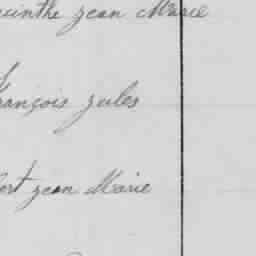 acinthe jean Marie
François jules
bert jean Marie